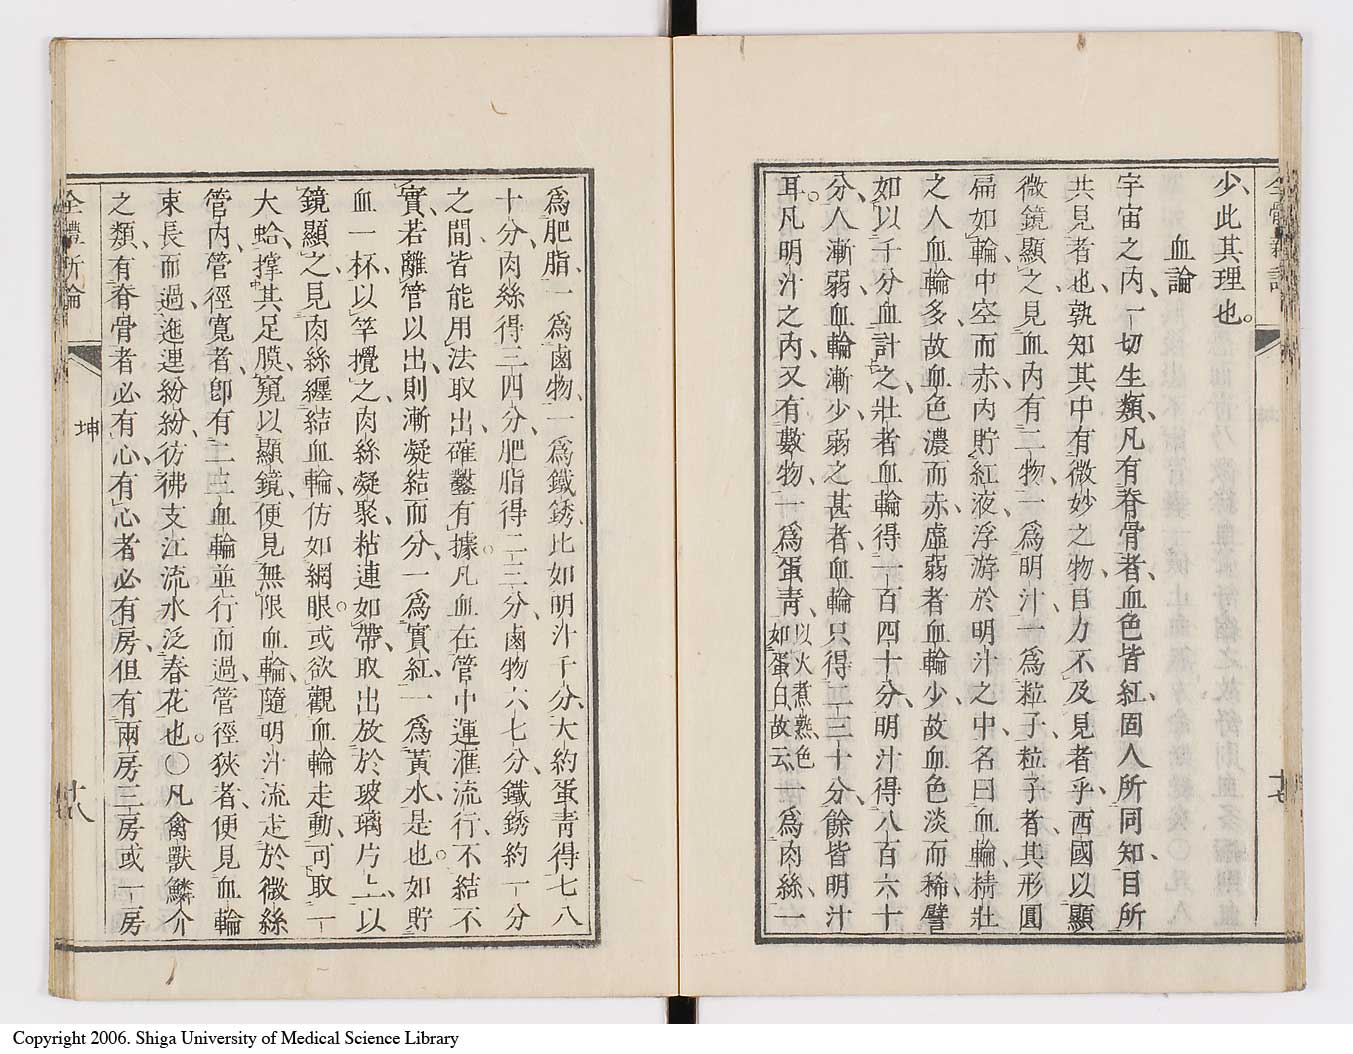 少此其理也。
血論
宇宙之內、一切生類、凡有脊骨者、血色皆紅、固人所同知、目所
共見者也、孰知其中有微妙之物、目力不及見者乎、西國以顯
微鏡顯之、見血內有二物、一爲明汁、一爲粒子、粒子者其形圓
扁如輪、中空而赤、內貯紅液、浮游於明汁之中、名曰血輪、精壯
之人血輪多、故血色濃而赤、虛弱者血輪少、故血色淡而稀、譬
如以千分血計之、壯者血輪得一百四十分、明汁得八百六十
分、人漸弱、血輪漸少、弱之甚者、血輪只得二三十分、餘皆明汁
耳。凡明汁之內、又有數物、一爲蛋靑、以火煮熟、色如蛋白、故云、一爲肉絲、一
全體新論
坤
爲肥脂、一爲鹵物、一爲鐵銹、比如明汁千分、大約蛋靑得七八
十分、肉絲得三四分、肥脂得二三分、鹵物六七分、鐵銹約一分
之間、皆能用法取出、確鑿有據。凡血在管中運滙流行、不結不
實、若離管以出、則漸凝結而分、一爲實紅、一爲黃水是也。如貯
血一杯、以竿攪之、肉絲凝聚、粘連如帶、取出放於玻璃片上、以
鏡顯之、見肉絲纏結、血輪仿如網眼。或欲觀血輪走動、可取一
大蛤、撑其足膜、窺以顯鏡、便見無限血輪、隨明汁流走於微絲
管內、管徑寬者、卽有二三血輪並行而過、管徑狹者、便見血輪
束長而過、迤逦紛紛、彷彿支江流水泛春花也。○凡禽獸鱗介
之類、有脊骨者必有心、有心者必有房、但有兩房三房或一房
全體新論
坤
十八
Copyright 2006. Shiga University of Medical Science Library